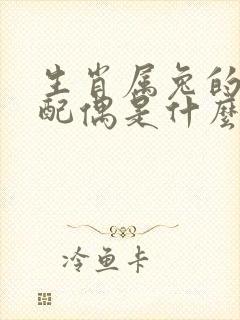 生肖属兔的
配偶是什麽
冷鱼卡